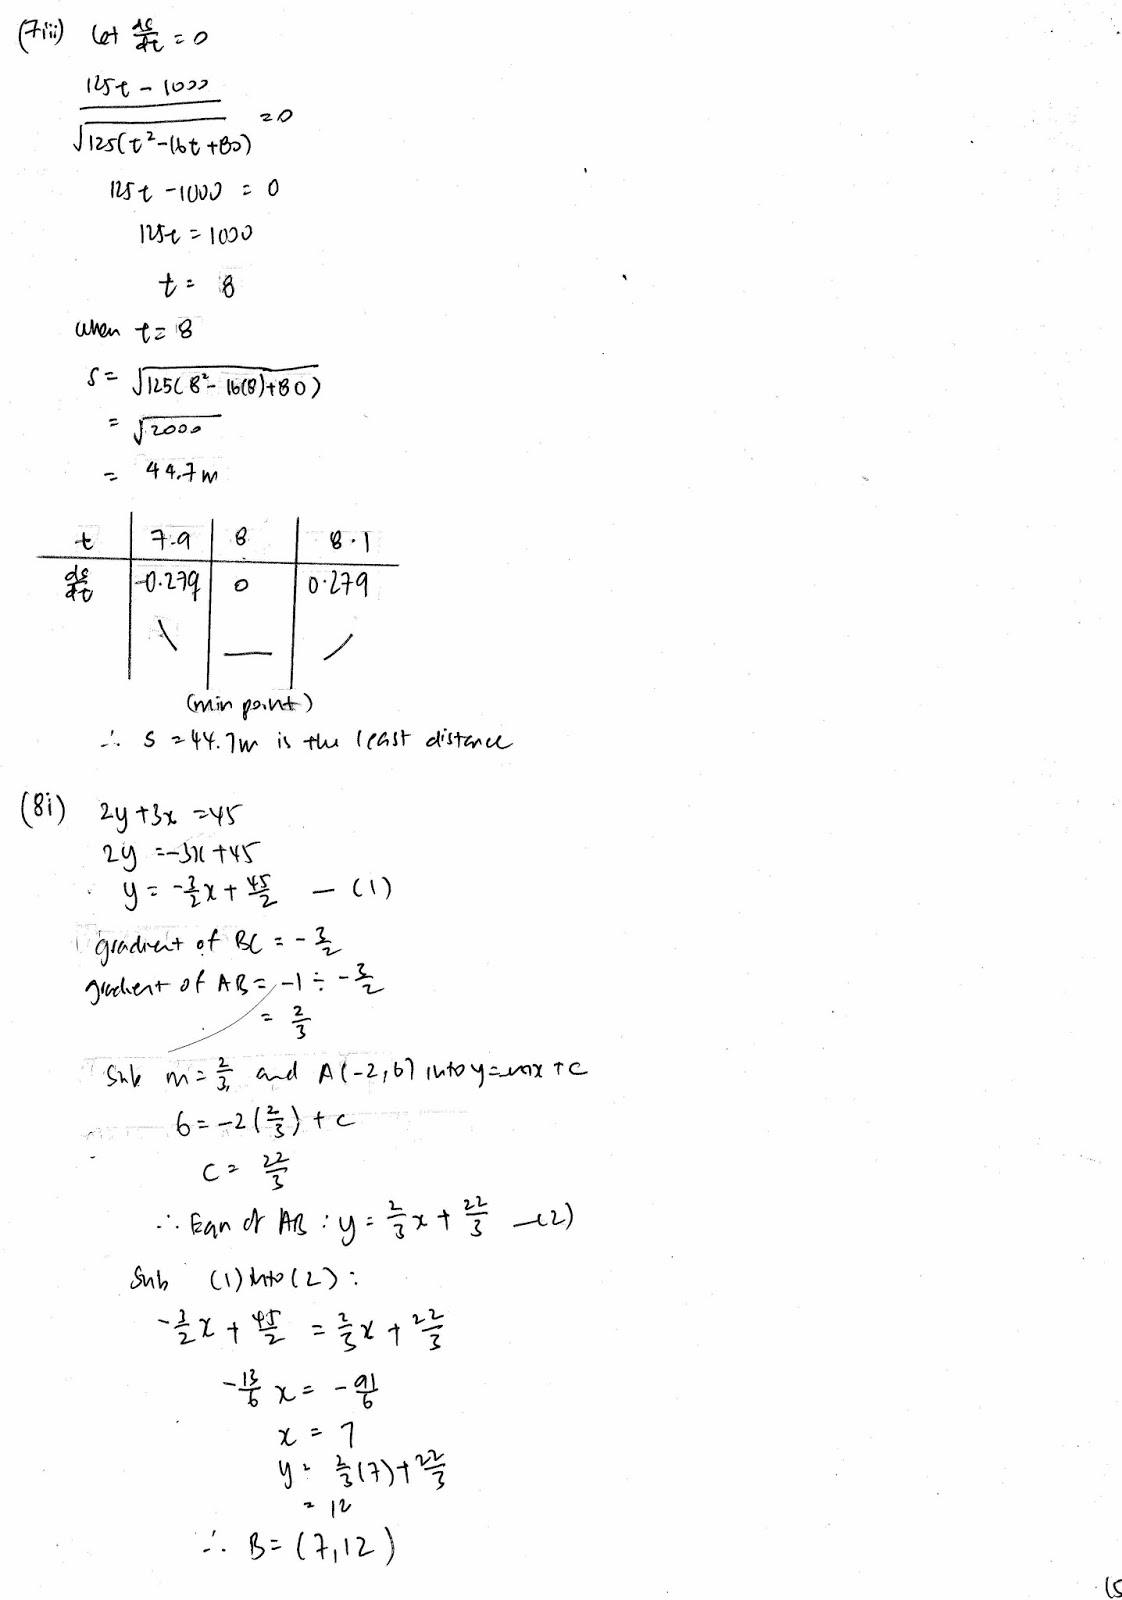 (7iii) Let ds/dt = 0
(125t - 1000)/√125(t² - 16t + 80) = 0
125t - 1000 = 0
125t = 1000
t = 8
when t = 8
s = √125(8² - 16(8) + 80)
= √2000
= 44.7m
t | 7.9 | 8 | 8.1
ds/dt | -0.279 | 0 | 0.279
\ — /
(min point)
∴ s = 44.7m is the least distance
(8i) 2y + 3x = 45
2y = -3x + 45
y = -3/2 x + 45/2 — (1)
gradient of BC = -3/2
gradient of AB = -1 ÷ -3/2
= 2/3
Sub m = 2/3, and A(-2,6) into y = mx + c
6 = -2(2/3) + c
c = 22/3
∴ Eqn of AB : y = 2/3 x + 22/3 —(2)
Sub (1) into (2) :
-3/2 x + 45/2 = 2/3 x + 22/3
-13/6 x = -91/6
x = 7
y = 2/3 (7) + 22/3
= 12
∴ B = (7,12)
(5